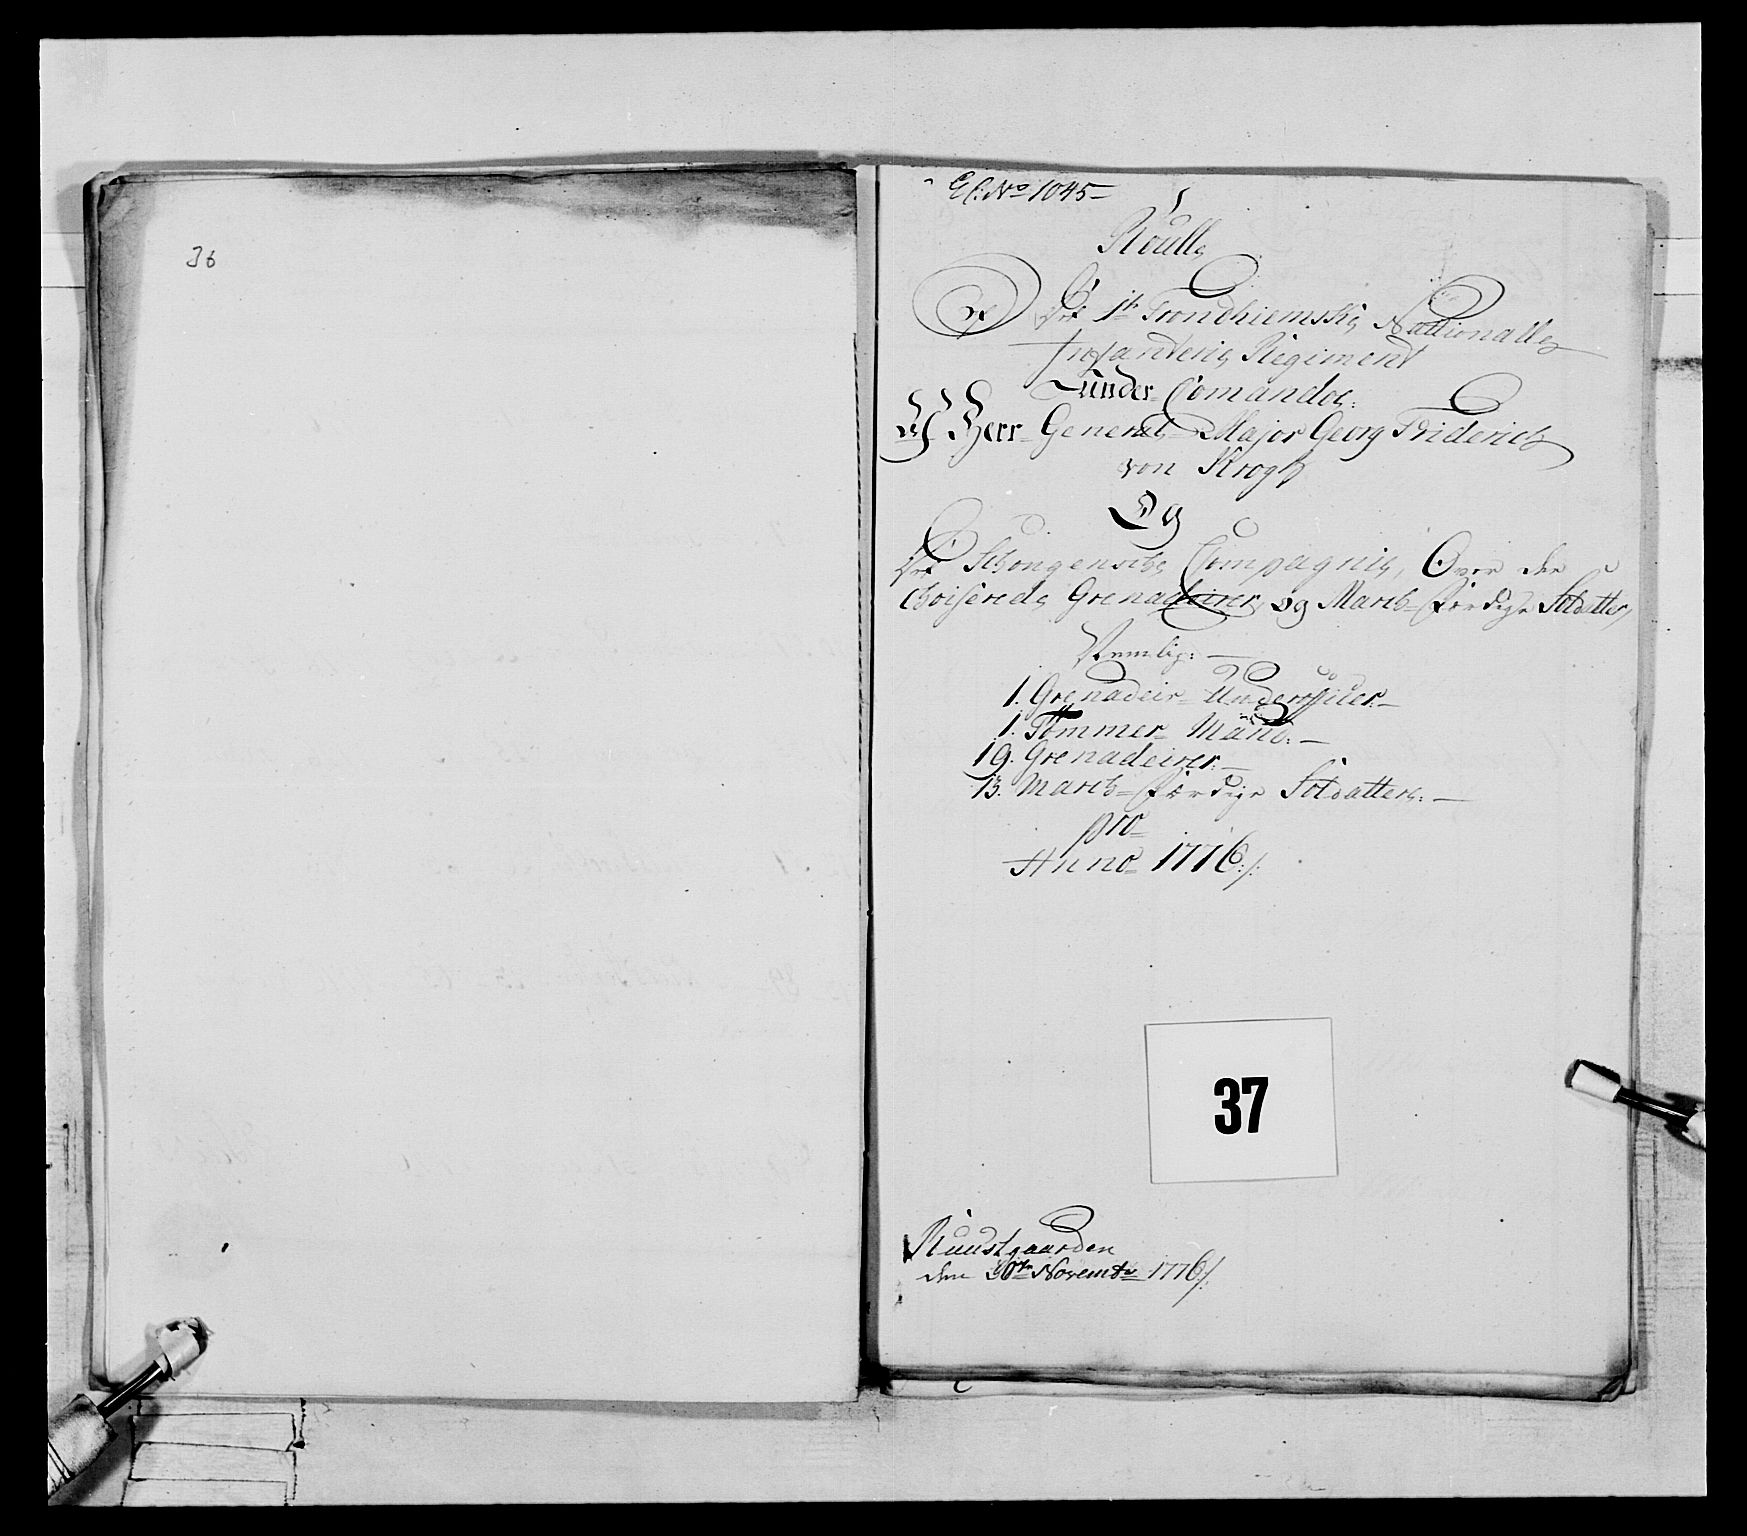 36
No 1045
Roulle
Af Det 1te Trondhiemske Nattionalle
Infanterie Regiment
under Comando
Af Herr General Major Georg Friderich
von Krogh
Og
Det Compagnie, Over der
Choiserede Grenadeirer og March-Færdige Soldatter,
Nemlig:
1. Grenadeir Underofficer
1. Tömmer Mand:
19. Grenadeirer:
13. March-Færdige Soldatter:
pro
Anno 1776:/:
37
Ruustgaarden
den 30te Novembr 1776/: